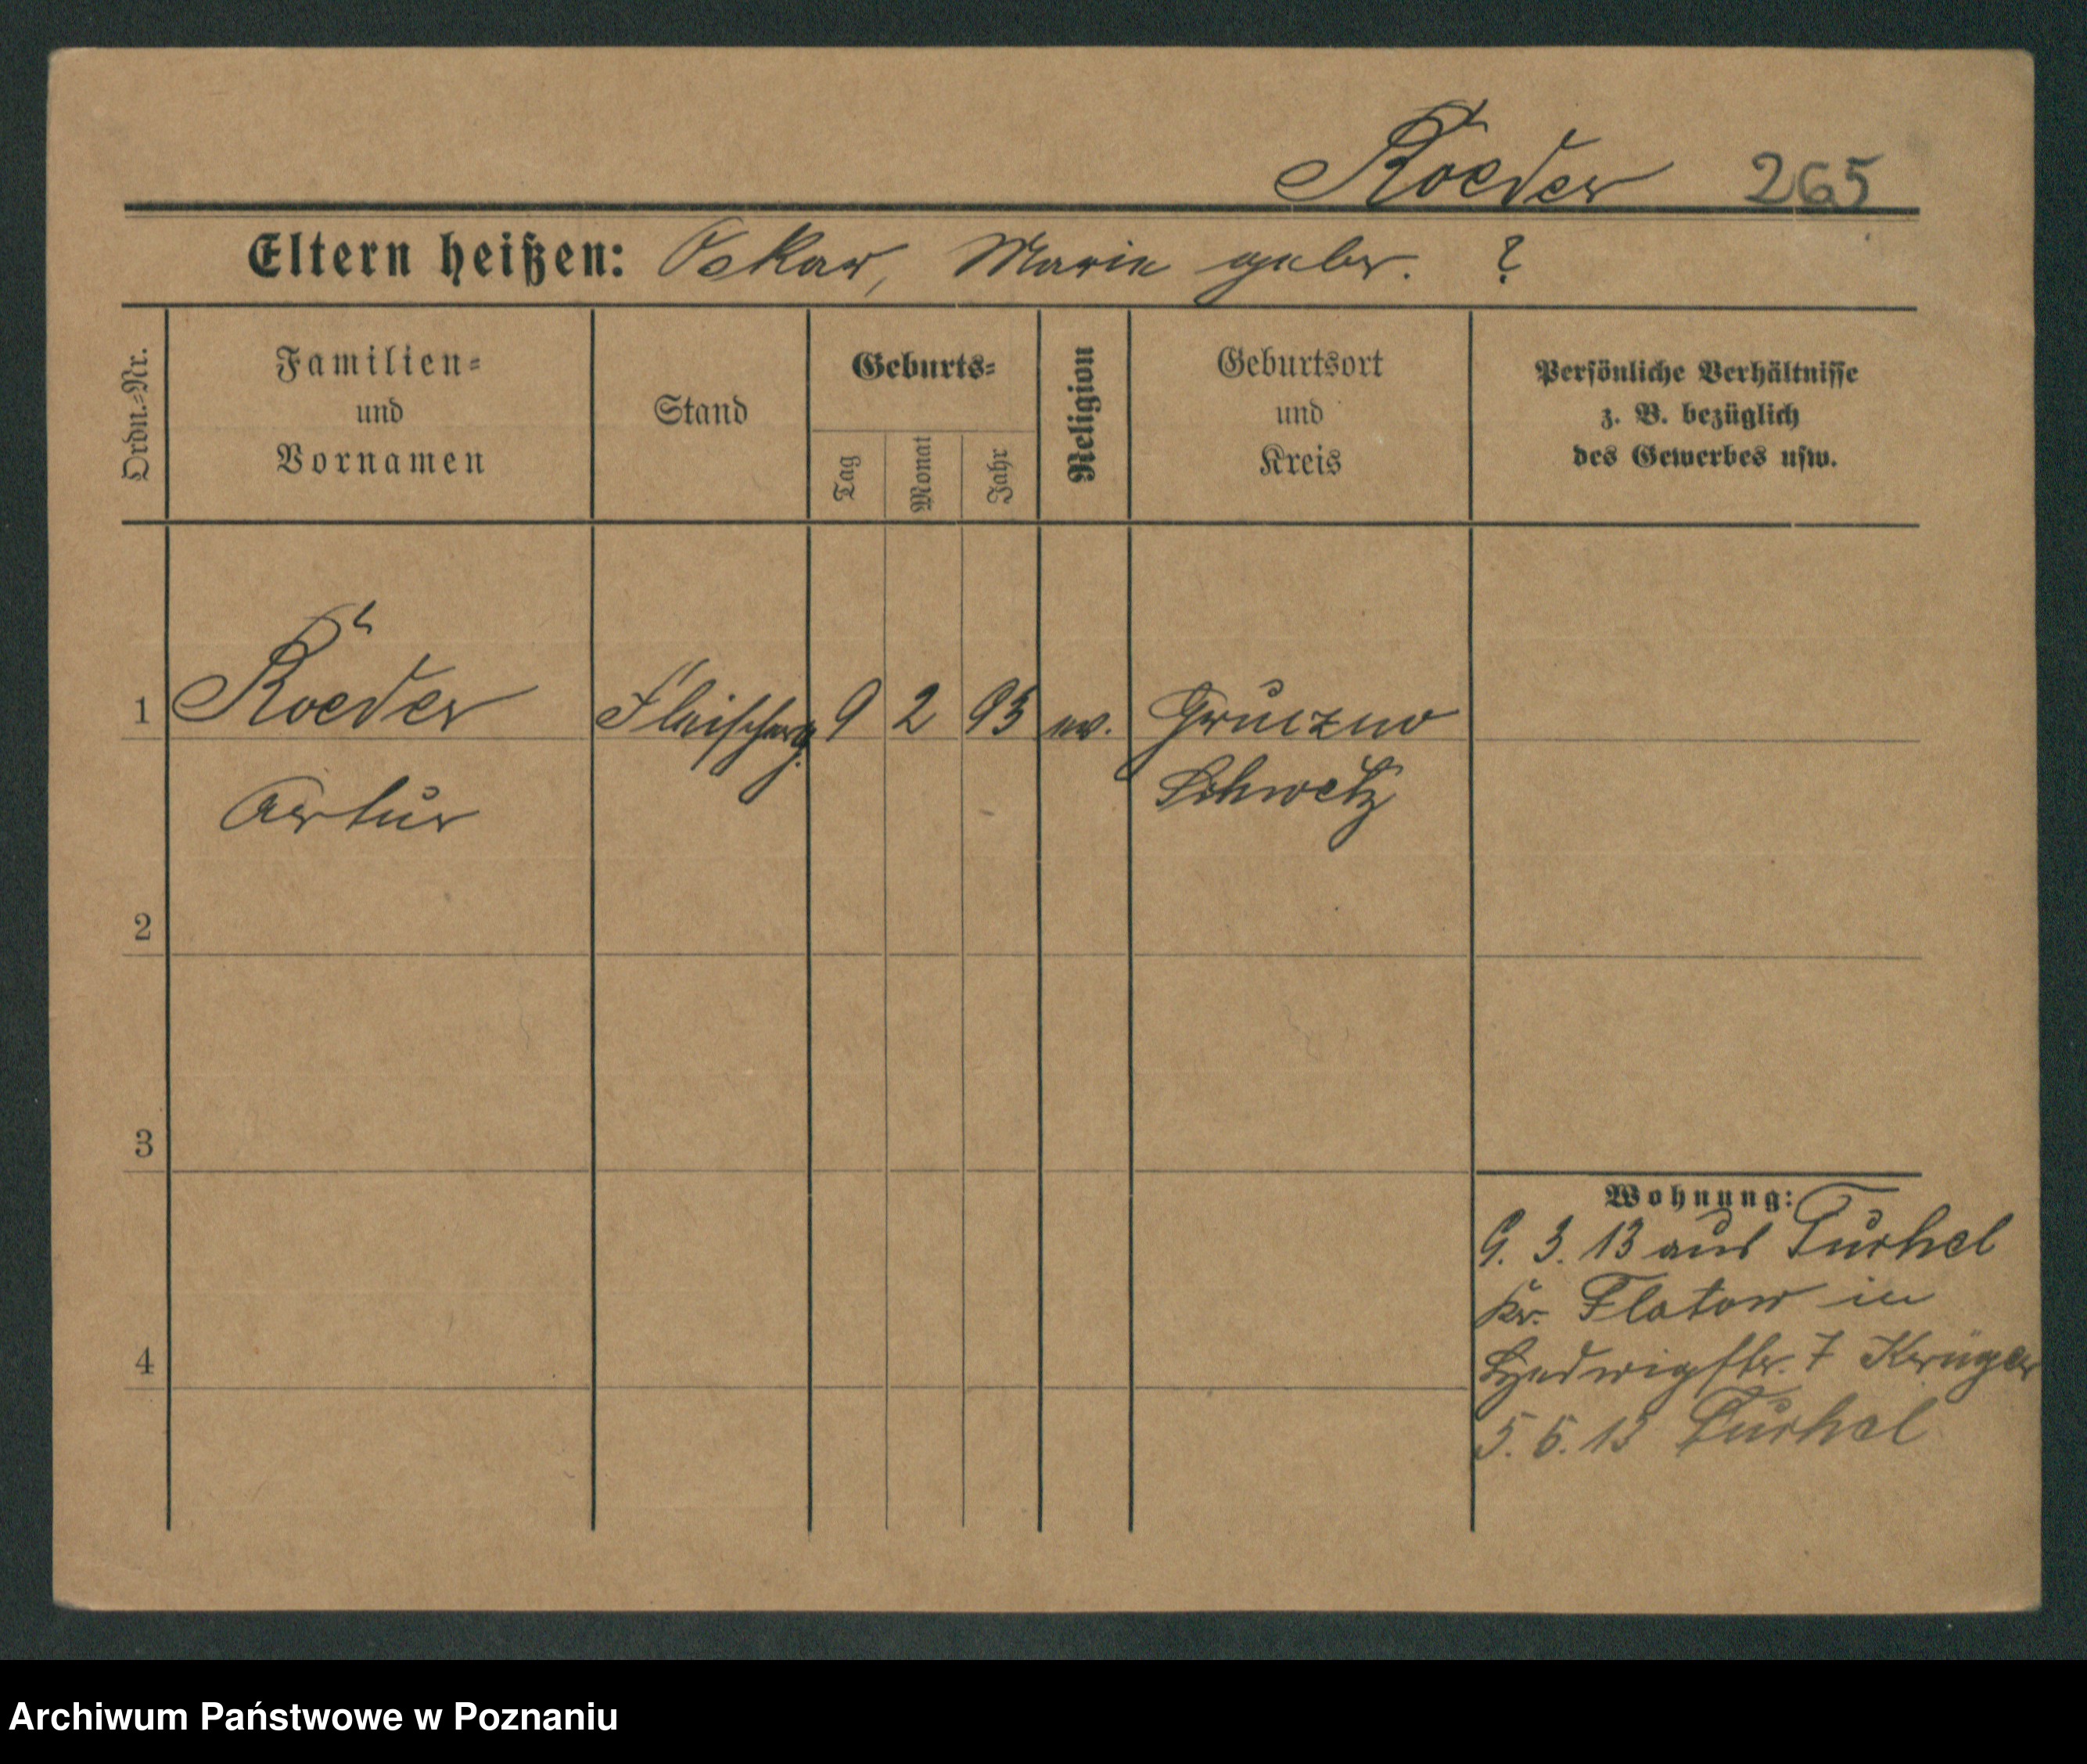 Roeder 265
Eltern heißen: Oskar, Marie gebr. ?
Ordn.-Nr.
Familien-
und
Vornamen
Stand
Geburts-
Tag
Monat
Jahr
Religion
Geburtsort
und
Kreis
Persönliche Verhältnisse
z. B. bezüglich
des Gewerbes usw.
1 Roeder Fleischerg. 9 2 93 ev. Gruczno
Artur Schwetz
2
3
4
Wohnung:
9. 3. 13 aus
Kr. Flatow in
Hedwigstr. 7 Krüger
5. 6. 13
Archiwum Państwowe w Poznaniu